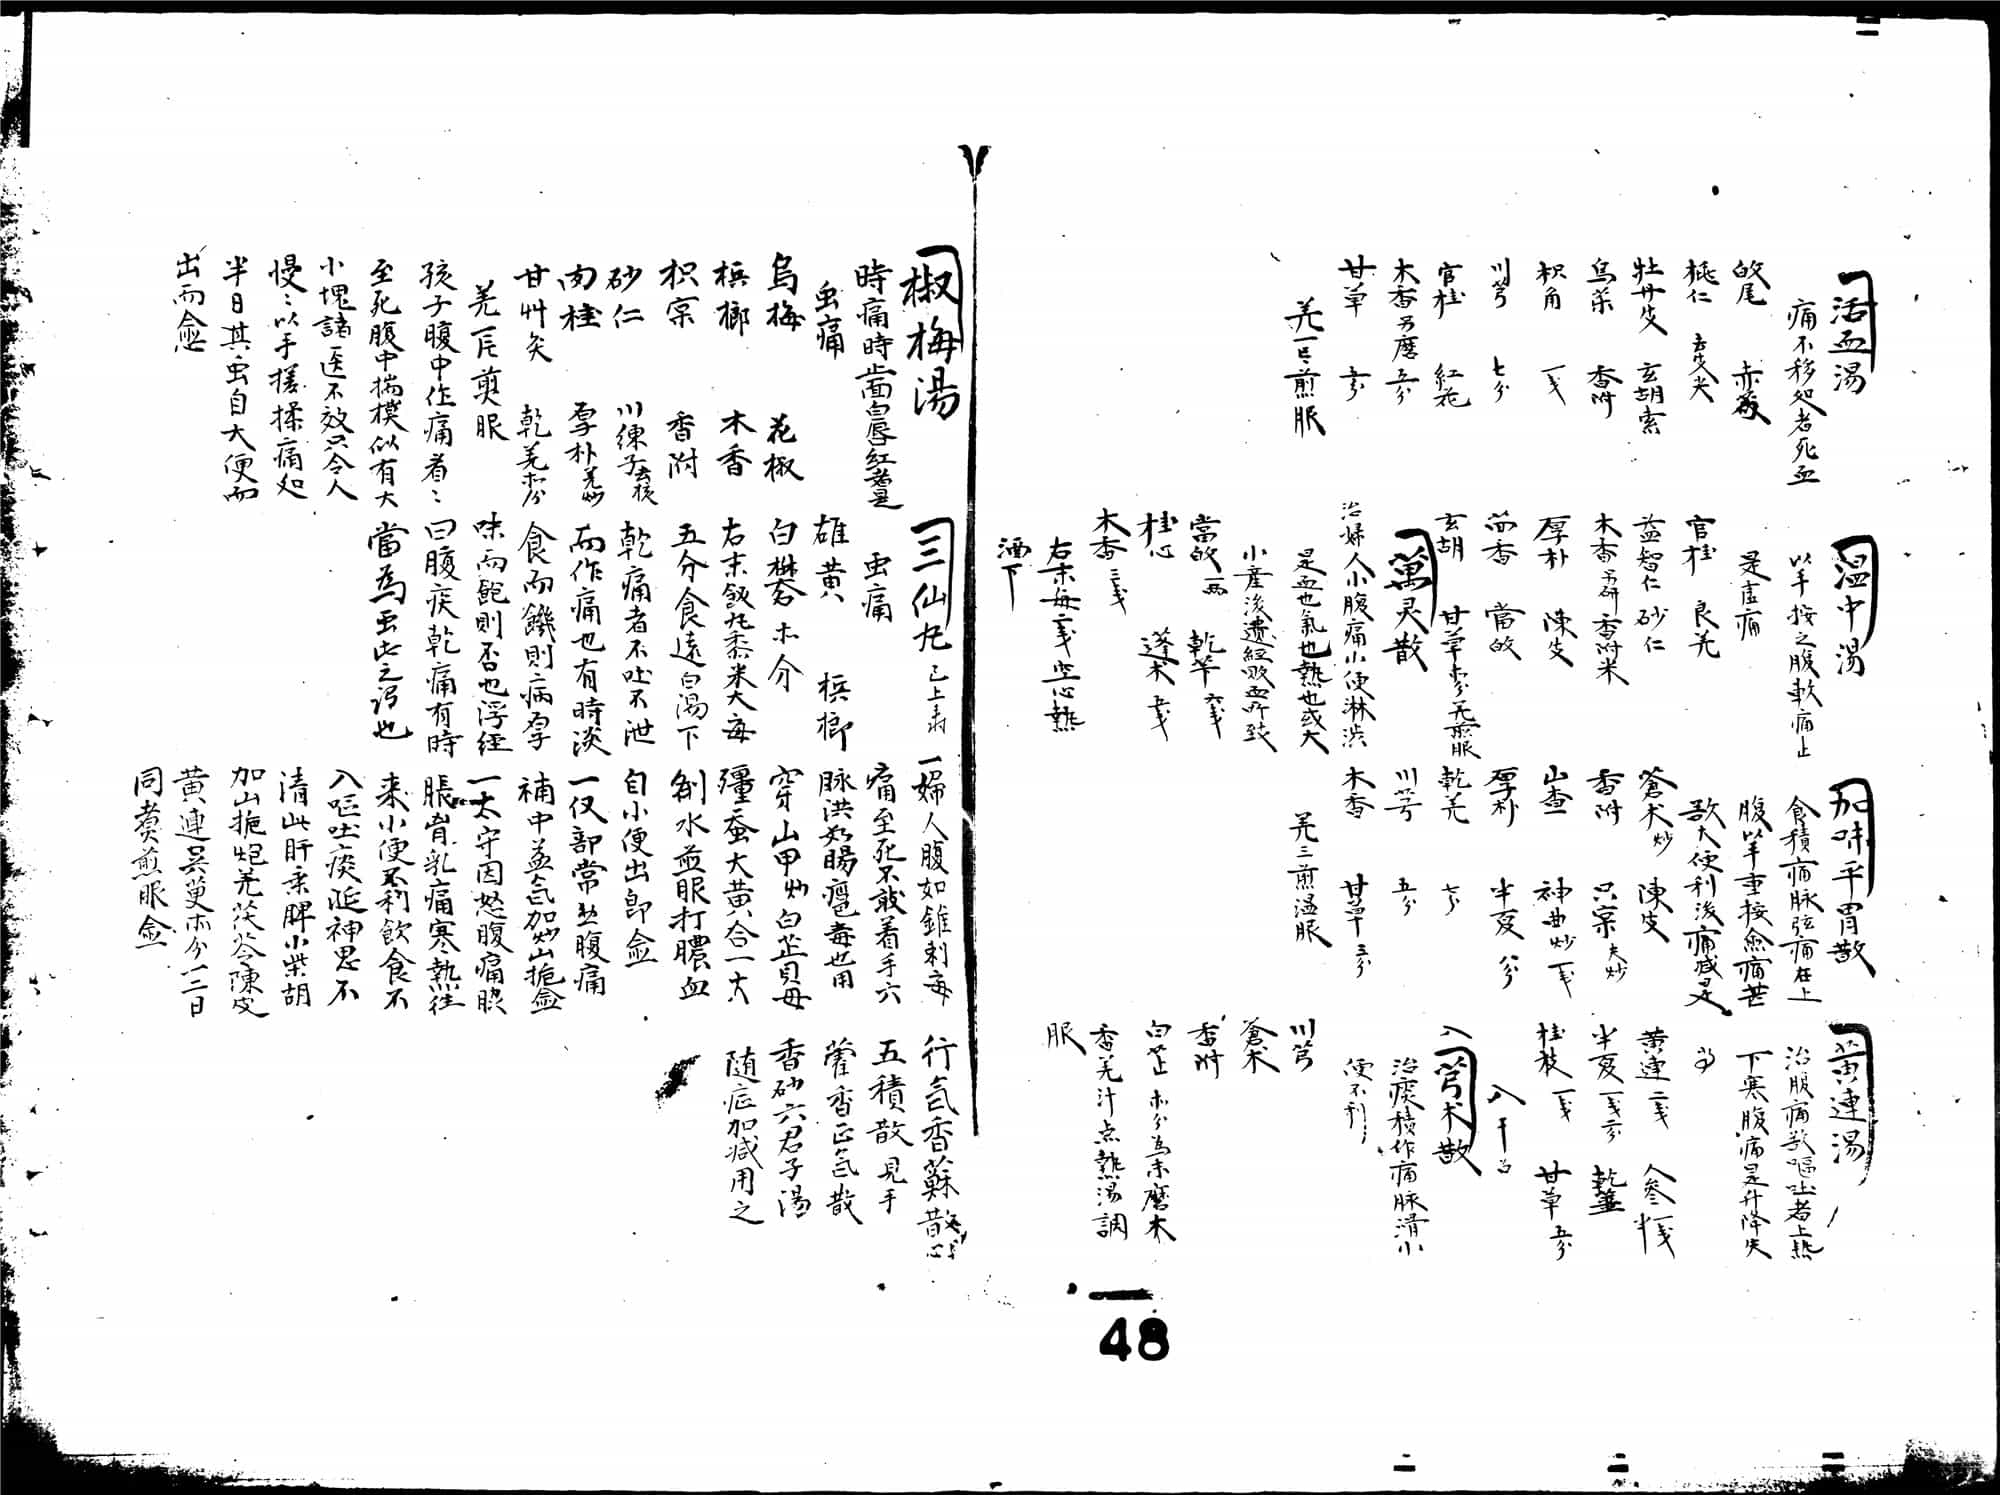 活血湯
痛不移処者死血
㱕尾 赤芍
桃仁 去皮尖
牡丹皮 玄胡索
烏茱 香附
枳角 一戋
川芎 七分
官桂 紅花
木香 另磨 五分
甘草 五分
羌一片煎服
温中湯
以手按之腹軟痛止
是虚痛
官桂 良羌
益智仁 砂仁
木香 另研 香附米
厚朴 陳皮
茴香 當㱕
玄胡 甘草 羌煎服
萬灵散
治婦人小腹痛小便淋渋
是血也氣也熱也或大
小産後遺経敗血所致
當㱕 一两 乾羊 六戋
桂心 蓬术 五戋
木香 三戋
右末每二戋空心熱
酒下
加味平胃散
食積痛脉弦痛在上
腹以手重按愈痛甚
欲大便利後痛减是
蒼术 炒 陳皮
香附 只宗 夫炒
山查 神曲 炒 一戋
厚朴 半夏 八分
乾羌 七分
川芎 五分
木香 甘草 三分
羌三煎温服
黄連湯
治腹痛欲嘔吐者上熱
下寒腹痛是升降失
黄連 二戋 人參 一戋半
半夏 一戋二分 乾羌
桂枝 一戋 甘草 五分
芎术散
治痰積作痛脉滑小
便不利
川芎
蒼术
香附
白芷 亦分為末磨木
香羌汁点熱湯調
服
48
椒梅湯
時痛時止面白唇紅者是
虫痛
烏梅 花椒
檳榔 木香
枳宗 香附
砂仁 川練子 去核
肉桂 厚朴 羌炒
甘艸 灸 乾羌 亦分
羌一片煎服
孩子腹中作痛看〻
至死腹中揣摸似有大
小塊諸医不效只令人
慢〻以手搓揉痛処
半日其虫自大便而
出而愈
三仙丸 已上
虫痛
雄黄 檳榔
白礬 亦分
右末飯丸黍米大每
五分食遠白湯下
乾痛者不吐不泄
而作痛也有時淡
食而饑則病厚
味而飽則否也浮經
曰腹疾乾痛有時
當為虫此之谓也
一婦人腹如錐刺每
痛至死不敢着手六
脉洪如腸癰毒也用
穿山甲炒白芷貝母
殭蚕大黄合一大
剤水煎服打膿血
自小便出即愈
一仅部常愁腹痛
補中益氣加炒山梔愈
一太守因怒腹痛脇
脹肯乳痛寒熱往
来小便不利飲食不
入嘔吐痰涎神思不
清此肝乗脾小柴胡
加山梔炮羌茯苓陳皮
黄連吴茰亦分一二日
同煮煎服愈
行氣香蘇散
五積散 見手
藿香正氣散
香砂六君子湯
随症加减用之